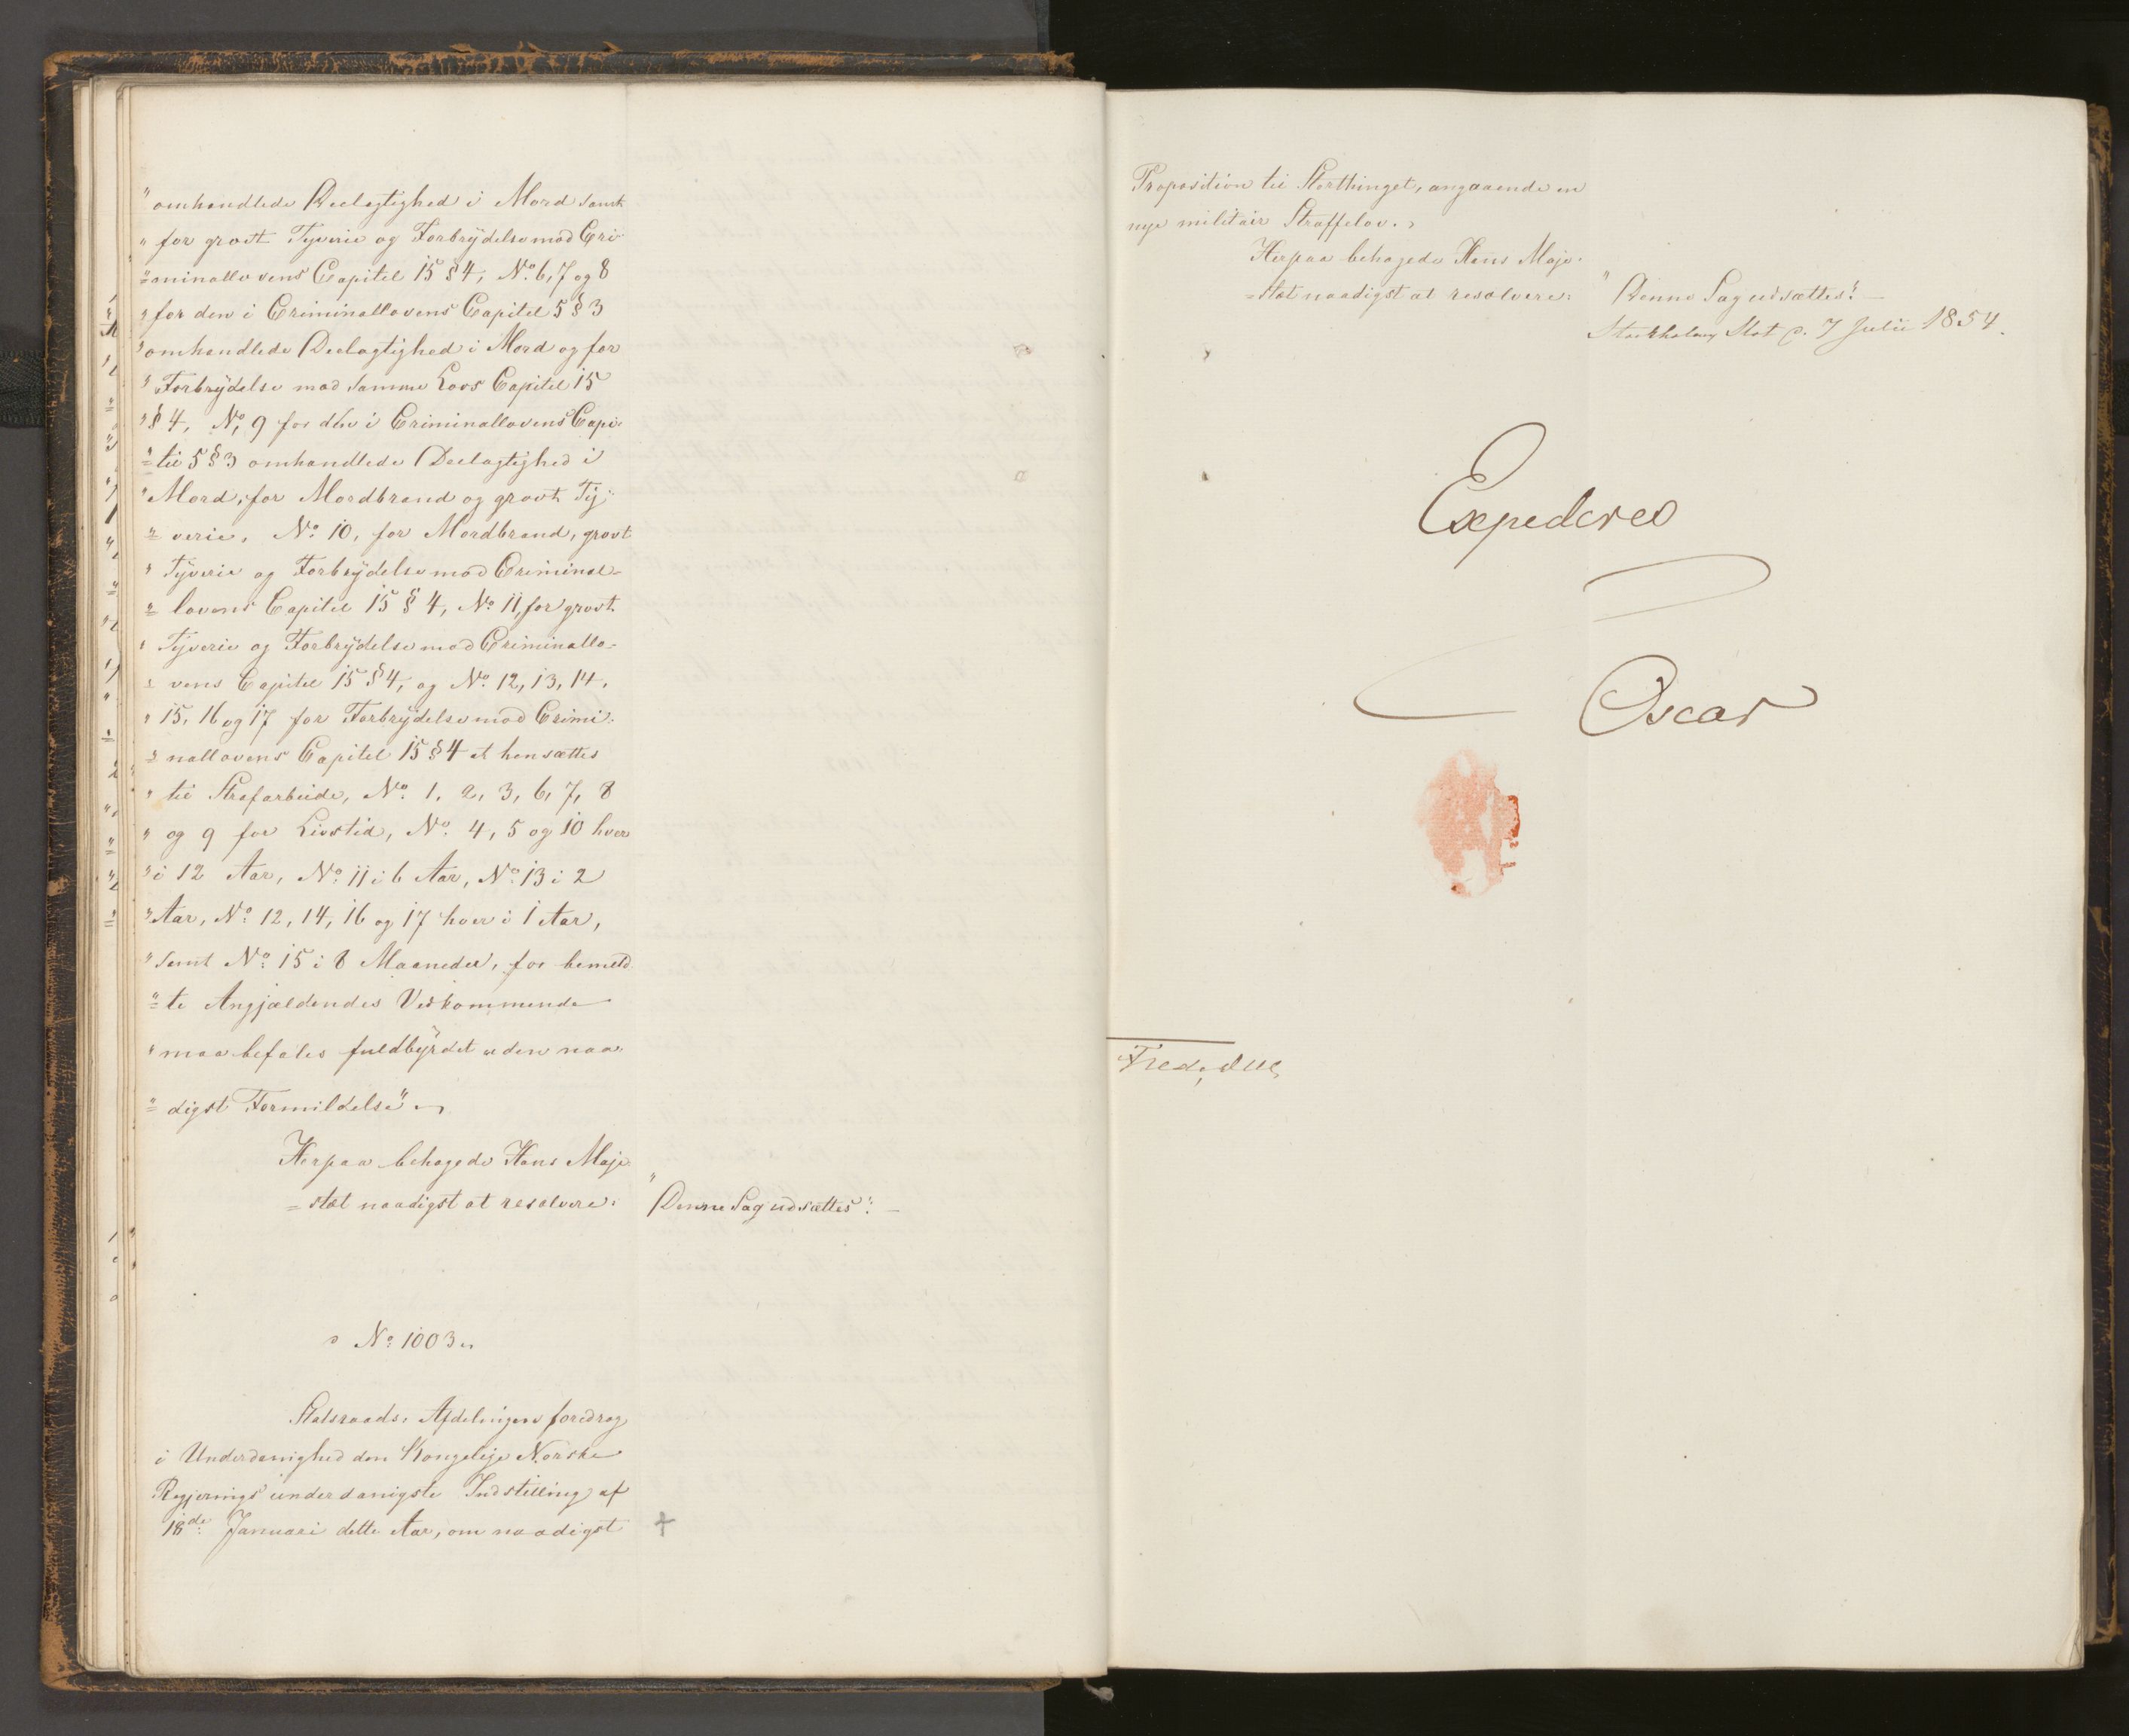 " omhandlede Deelagtighed i Mord samt
" for grovt Tyverie og Forbrydelse mod Cri-
"=minallovens Capitel 15 § 4, No. 6, 7 og 8
" for den i Criminallovens Capitel 5 § 3
" omhandlede Deelagtighed i Mord og for
" Forbrydelse mod samme Lovs Capitel 15
" § 4, No. 9 for den i Criminallovens Capi-
"=tel 5 § 3 omhandlede Deelagtighed i
" Mord, for Mordbrand og grovt Ty-
"=verie, No. 10, for Mordbrand, grovt
" Tyverie og Forbrydelse mod Criminal-
"=lovens Capitel 15 § 4, No. 11, for grovt
" Tyverie og Forbrydelse mod Criminallo-
"=vens Capitel 15 § 4, og No. 12, 13, 14,
" 15, 16 og 17 for Forbrydelse mod Crimi-
"=nallovens Capitel 15 § 4 at hensættes
" til Strafarbeide, No. 1, 2, 3, 6, 7, 8
" og 9 for Livstid, No. 4, 5 og 10 hver
" i 12 Aar, No. 11 i 6 Aar, No. 13 i 2
" Aar, No. 12, 14, 16 og 17 hver i 1 Aar,
" samt No. 15 i 8 Maaneder, for bemeld-
"=te Angjældendes Vedkommende
" maa befales fuldbyrdet uden naa-
"=digst Formildelse".
Herpaa behagede Hans Maje-
=stæt naadigst at resolvere:
"Denne Sag udsættes". —
No. 1003.
Statsraads-Afdelingen foredrog
i Underdanighed den Kongelige Norske
Regjerings underdanigste Indstilling af
18de Januari dette Aar, om naadigst
Proposition til Storthinget, angaaende en
nye militair Straffelov.
Herpaa behagede Hans Maje-
=stæt naadigst at resolvere:
"Denne Sag udsættes". —
Stockholms Slot d. 7 Julii 1854.
Expederes
Oscar
Fred. Due